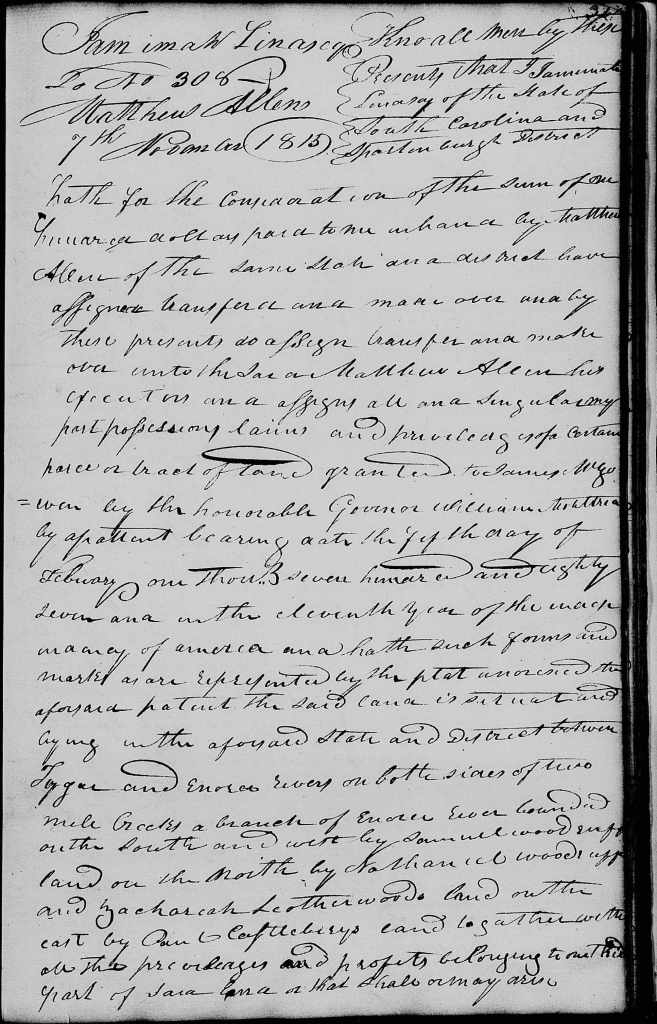 Jamimah Linasey
To No 308
Matthew Allens
7th November 1815
Kno all Men by these
Presents that I Jamimah
Linasay of the State of
South Carolina and
Spartenburgh District
hath for the Consideration of the Sum of one
hundred dollars paid to me in hand by Matthew
Allen of the Same State and district have
assigned transferd and made over and by
these presents do assign transfer and make
over unto the Said Matthew Allen his
Executors and assigns all and Singular my
part possessions claims and priviledges of a Certain
parcel or tract of land granted to James Mcgo
=wen by the honorable Govenor William Moultrie
by a pattent bearing date the fifth day of
February one Thousd seven hundred and Eighty
Seven and in the eleventh year of the
of america and hath such forms and
marks as are represented by the plat the
aforsaid patent the said land is situat and
lying in the aforsaid State and District between
Tygar and Enoree rivers on both sides of two
mile Creeks a branch of Enoree river bounded
on the South and west by Samuel Woodruff
land on the North by Nathaniel Woodruff
and Zachareah Leatherwoods land on the
east by Paul Castleberys land together with
all the previledges and profits belonging to one third
part of Said land or that Shall or may arise